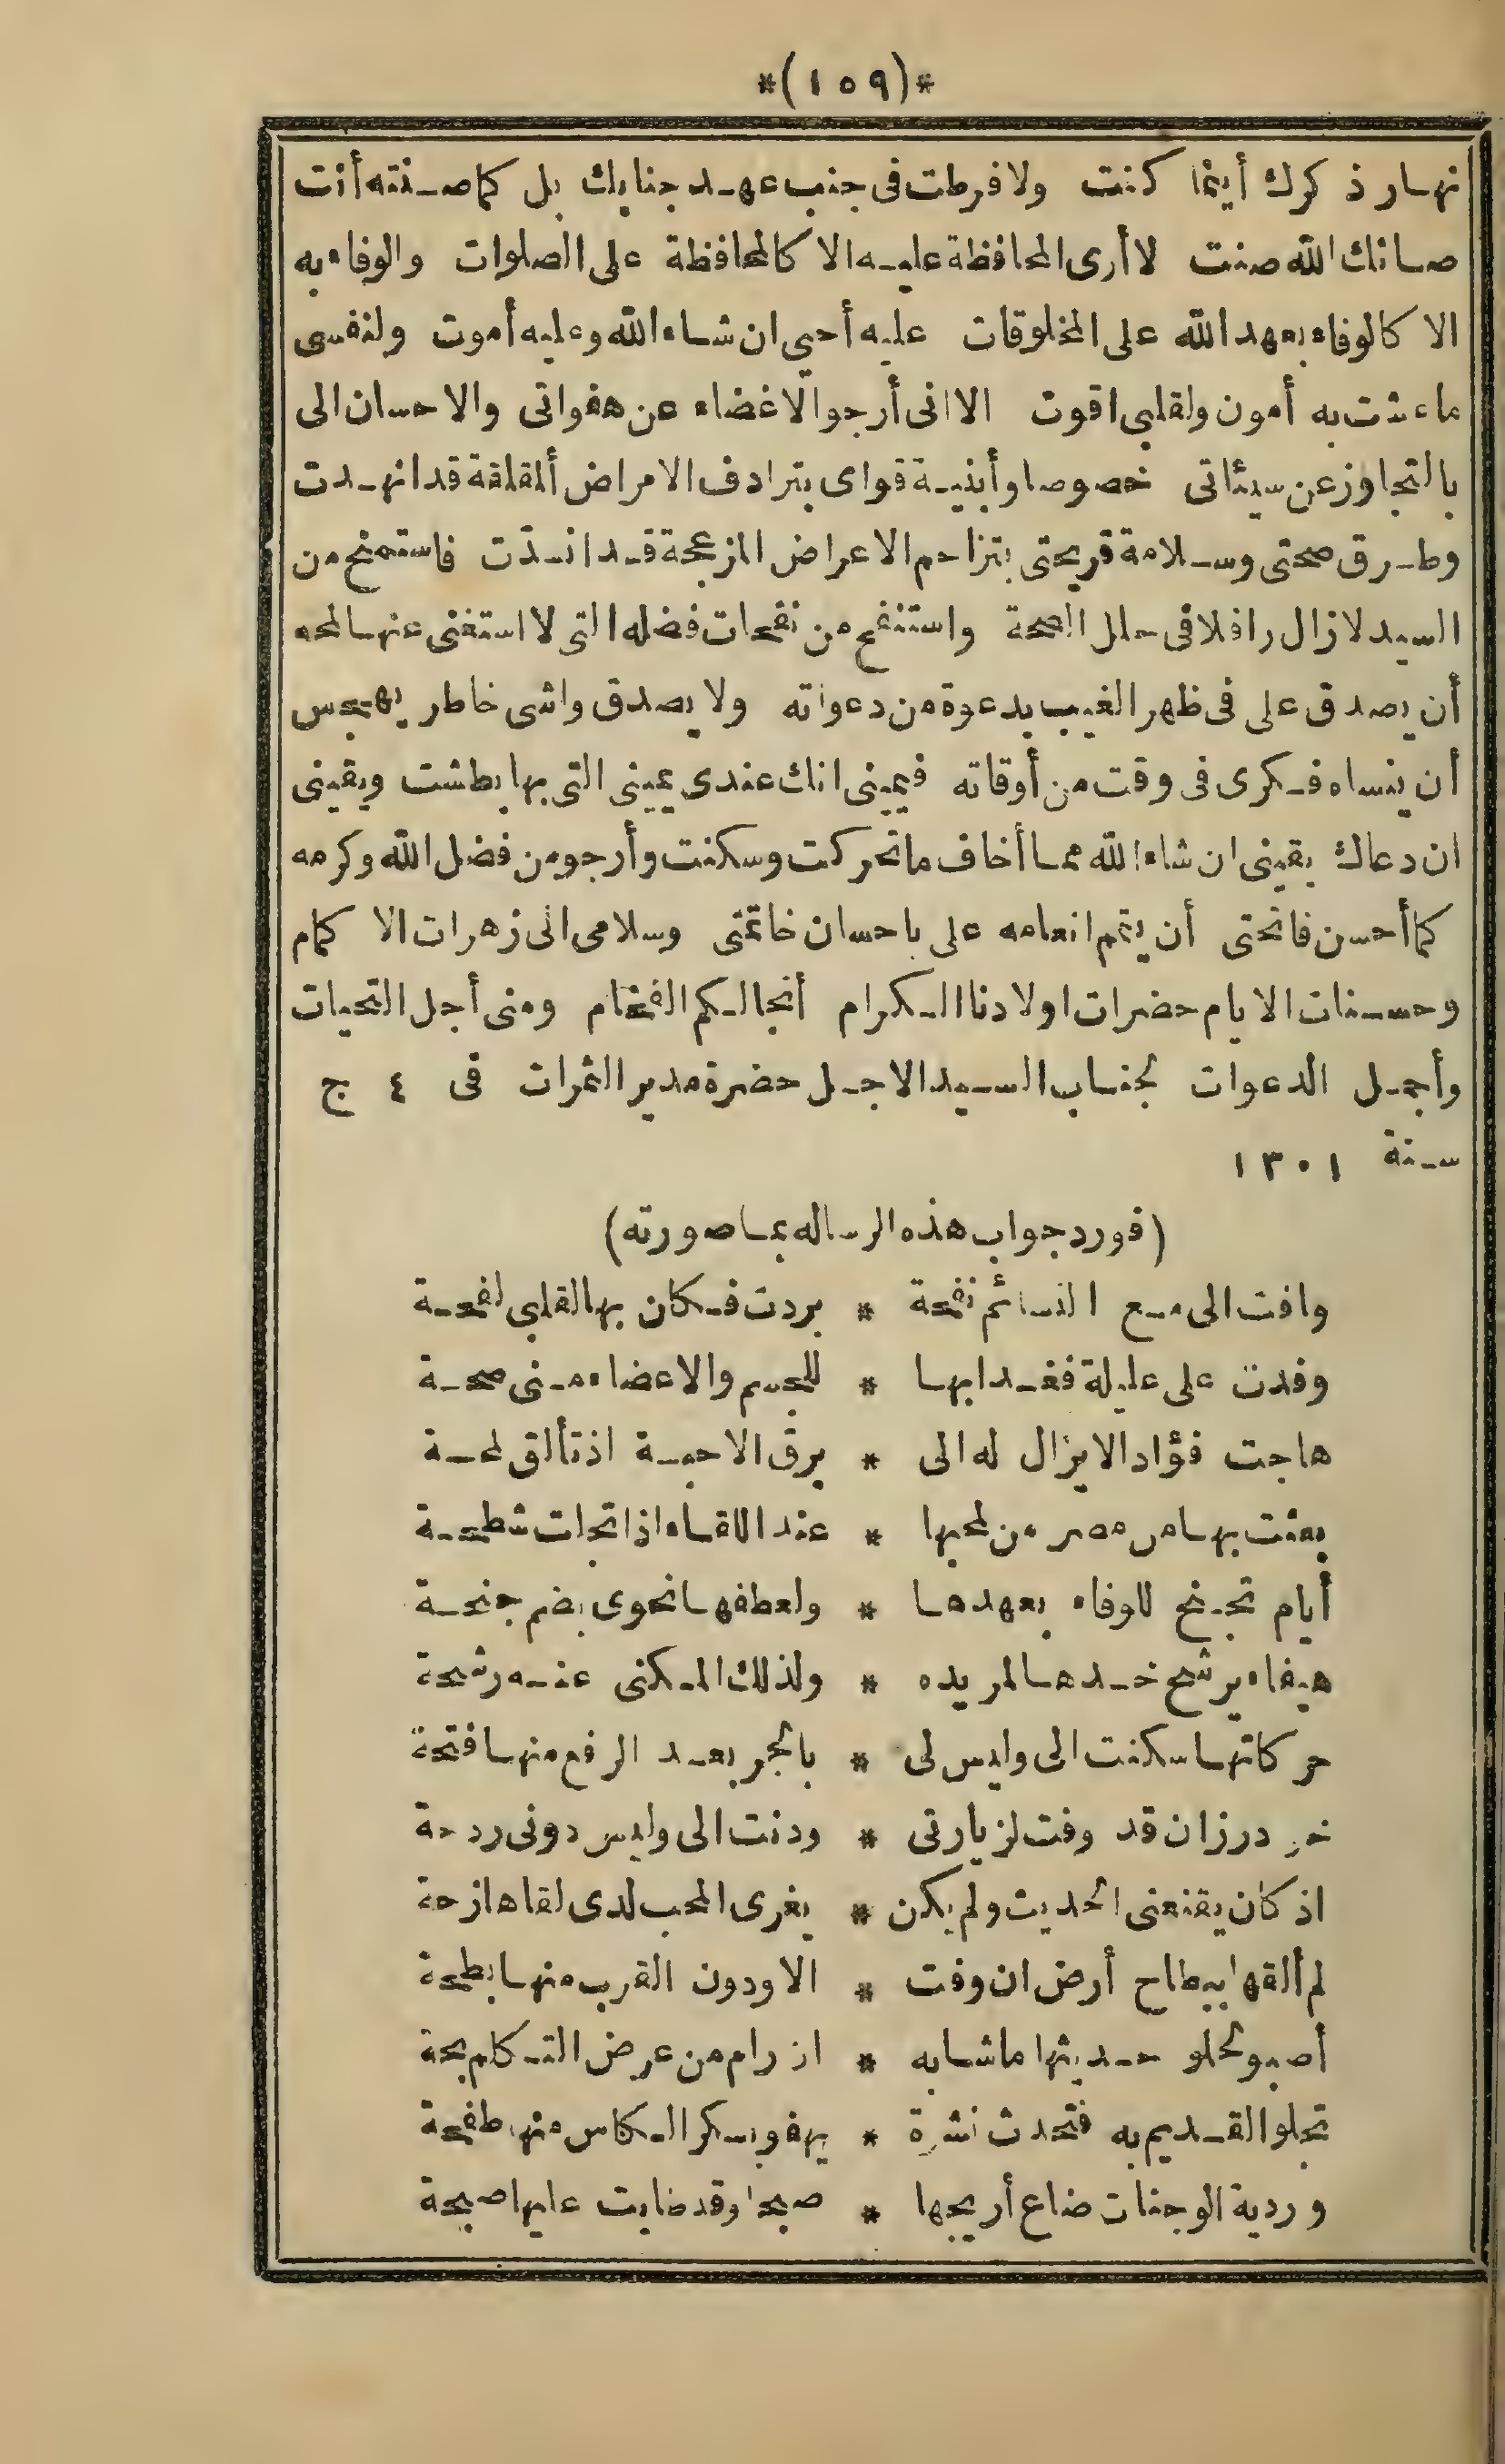 *(١٥٩)*
نهار ذكرك أينما كنت ولا فرطت فى جنب عهد جنابك بل كما صنته أنت
صانك الله صنت لا أرى المحافظة عليه الا كالمحافظة على الصلوات والوفاء به
الا كالوفاء بعهد الله على المخلوقات عليه أحيى ان شاء الله وعليه أموت ولنفسى
ما عشت به أمون ولقلبى اقوت الا انى أرجو الاغضاء عن هفواتى والاحسان الى
بالتجاوز عن سيئاتى خصوصا وأبنية قواى بترادف الامراض المقلقة قد انهدت
وطرق صحتى وسلامة قريحتى بتزاحم الاعراض المزعجة قد انسدّت فاستمنح من
السيد لازال رافلا فى حلل الصحة واستنفح من نفحات فضله التى لا استغنى عنها لمحه
أن يصدق على فى ظهر الغيب بدعوة من دعواته ولا يصدق واشى خاطر يهجس
أن ينساه فكرى فى وقت من أوقاته فيمينى انك عندى يمينى التى بها بطشت ويقينى
ان دعاك يقينى ان شاء الله مما أخاف ما تحركت وسكنت وأرجو من فضل الله وكرمه
كما أحسن فاتحتى أن يتم انعامه على باحسان خاتمتى وسلامى الى زهرات الاكمام
وحسنات الايام حضرات اولادنا الكرام أنجالكم الفخام ومنى أجل التحيات
وأجمل الدعوات لجناب السيد الاجل حضرة مدير الثمرات فى ٤ ج
سنة ١٣٠١
(فورد جواب هذه الرساله بما صورته)
وافت الى مع النسائم نفحة * بردت فكان بها لقلبى لفحة
وفدت على عليلة فغدا بها * للجسم والاعضاء منى صحة
هاجت فؤادا لايزال له الى * برق الاحبة اذ تألق لمحة
بعثت بها من مصر من لمحبها * عند اللقاء اذا تجلت شطحة
أيام تجنح للوفاء بعهدها * ولعطفها نحوى بضم جنحة
هيفاء يرشح خدها لمريده * ولذلك المكنى عنه رشحة
حركاتها سكنت الى وليس لى * بالجر بعد الرفع منها فتحة
خود رزان قد وفت لزيارتى * ودنت الى وليس دونى ردحة
اذ كان يقنعنى الحديث ولم يكن * يغرى المحب لدى لقاها زحة
لم ألقها ببطاح أرض ان وفت * الا ودون القرب منها بطحة
أصبو لحلو حديثها ما شابه * ان رام من عرض التكلم بحة
تجلو القديم به فتحدث نشرة * يهفو بسكر الكاس منها طفحة
وردية الوجنات ضاع أريجها * صبحا وقد طابت عليها صبحة